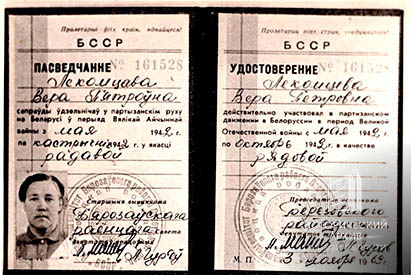 Пралетарыі ўсіх краін, яднайцеся!
БССР
ПАСВЕДЧАННЕ № 161528
Лехомцава
Вера Пятроўна
сапраўды ўдзельнічаў у партызанскім руху
на Беларусі ў перыяд Вялікай Айчыннай
вайны з мая 1942 г.
па кастрычнік 1942 г. у якасці
радавой
Старшыня выканкома
Бярозаўскага
раённага Савета
Пролетарии всех стран, соединяйтесь!
БССР
УДОСТОВЕРЕНИЕ № 161528
Лехомцева
Вера Петровна
действительно участвовал в партизанском
движении в Белоруссии в период Великой
Отечественной войны с мая 1942 г.
по октябрь 1942 г. в качестве
рядовой
Председатель исполкома
Березовского
районного
М. П. 3 ноября 1969 г.